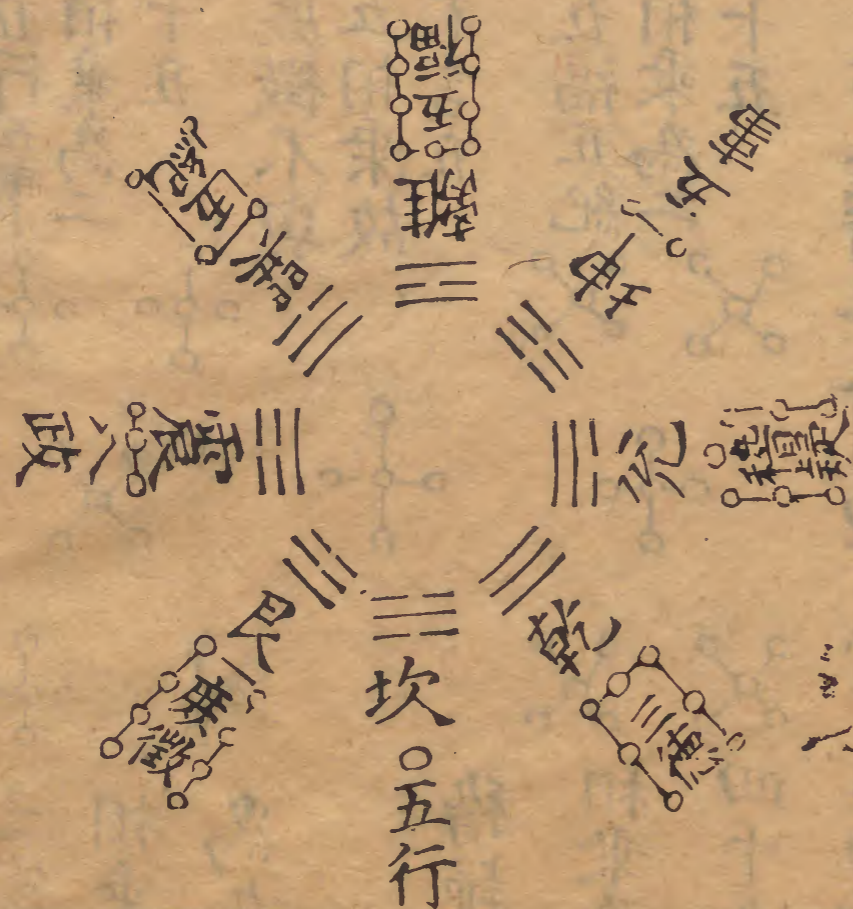 離 五福
坤 五事
兌 稽疑
乾 三德
坎 五行
艮 庶徵
震 八政
巽 五紀